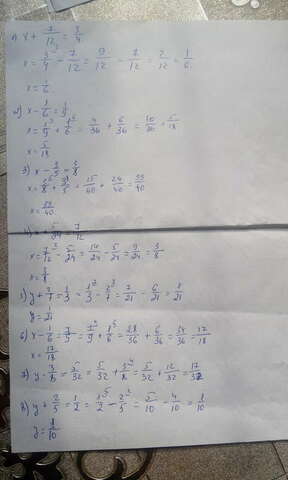 1) x + 7/12 = 3/4
x = 3/4 - 7/12 = 9/12 - 7/12 = 2/12 = 1/6
x = 1/6
2) x - 1/6 = 1/9
x = 1/9 + 1/6 = 4/36 + 6/36 = 10/36 = 5/18
x = 5/18
3) x - 3/5 = 3/8
x = 3/8 + 3/5 = 15/40 + 24/40 = 39/40
x = 39/40
4) x + 5/24 = 7/12
x = 7/12 - 5/24 = 14/24 - 5/24 = 9/24 = 3/8
x = 3/8
5) y + 2/7 = 1/3 = 1/3 - 2/7 = 7/21 - 6/21 = 1/21
y = 1/21
6) x - 1/6 = 7/9 = 7/9 + 1/6 = 28/36 + 6/36 = 34/36 = 17/18
x = 17/18
7) y - 3/8 = 5/32 = 5/32 + 3/8 = 5/32 + 12/32 = 17/32
8) y + 2/5 = 1/2 = 1/2 - 2/5 = 5/10 - 4/10 = 1/10
y = 1/10